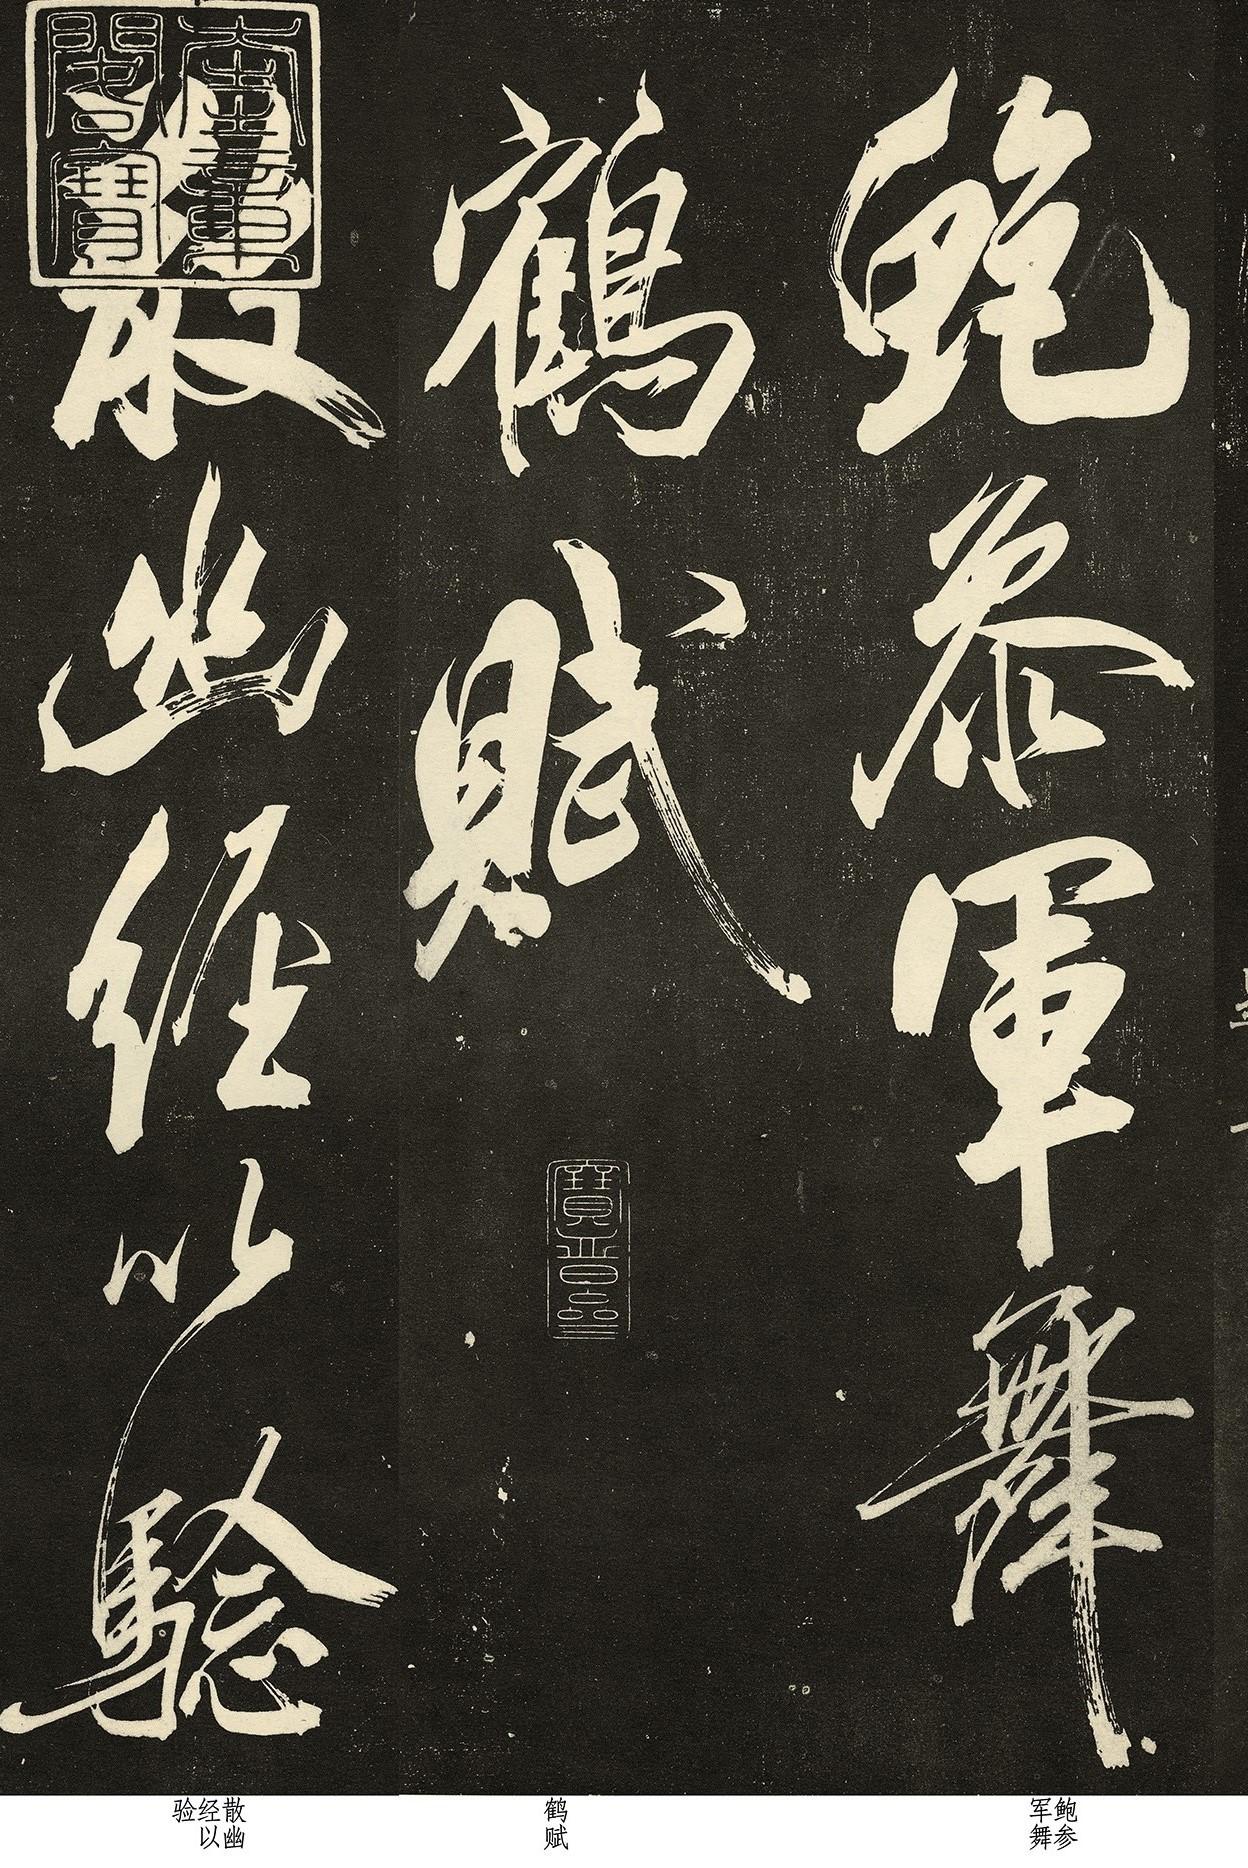 鮑參軍舞
鶴賦
散幽經以驗
奎章
閣寶
鲍参
军舞
鹤赋
散幽
经以
验